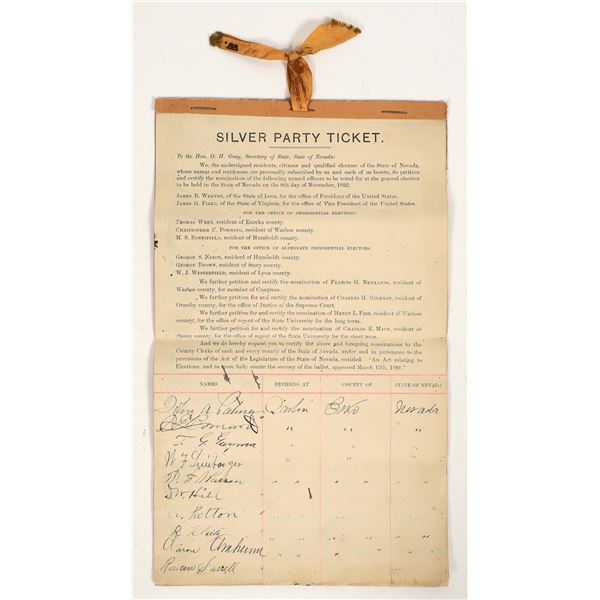 SILVER PARTY TICKET.
To the Hon. O. H. Grey, Secretary of State, State of Nevada:
We, the undersigned residents, citizens and qualified electors of the State of Nevada,
whose names and residences are personally subscribed by us and each of us hereto, do petition
and certify the nomination of the following named officers to be voted for at the general election
to be held in the State of Nevada on the 8th day of November, 1892.
JAMES B. WEAVER, of the State of Iowa, for the office of President of the United States.
JAMES G. FIELD, of the State of Virginia, for the office of Vice President of the United States.
FOR THE OFFICE OF PRESIDENTIAL ELECTORS:
THOMAS WREN, resident of Eureka county.
CHRISTOPHER C. POWNING, resident of Washoe county.
M. S. BONNIFIELD, resident of Humboldt county.
FOR THE OFFICE OF ALTERNATE PRESIDENTIAL ELECTORS:
GEORGE S. NIXON, resident of Humboldt county.
GEORGE BROWN, resident of Storey county.
W. J. WESTERFIELD, resident of Lyon county.
We further petition and certify the nomination of FRANCIS G. NEWLANDS, resident of
Washoe county, for member of Congress.
We further petition for and certify the nomination of CHARLES H. BELKNAP, resident of
Ormsby county, for the office of Justice of the Supreme Court.
We further petition for and certify the nomination of HENRY L. FISH, resident of Washoe
county, for the office of regent of the State University for the long term.
We further petition for and certify the nomination of CHARLES E. MACK, resident of
Storey county, for the office of regent of the State University for the short term.
And we do hereby request you to certify the above and foregoing nominations to the
County Clerks of each and every county of the State of Nevada, under and in pursuance to the
provisions of the Act of the Legislature of the State of Nevada, entitled: "An Act relating to
Elections, and to more fully secure the secrecy of the ballot, approved March 13th, 1891."
NAMES RESIDING AT COUNTY OF STATE OF NEVADA.
John A Palmer Carlin Elko Nevada
" " "
T. G. " " "
W F " " "
" " " "
D. W. Hill " " "
Hilton " " "
R " " "
Aaron Amheim " " "
Rowen